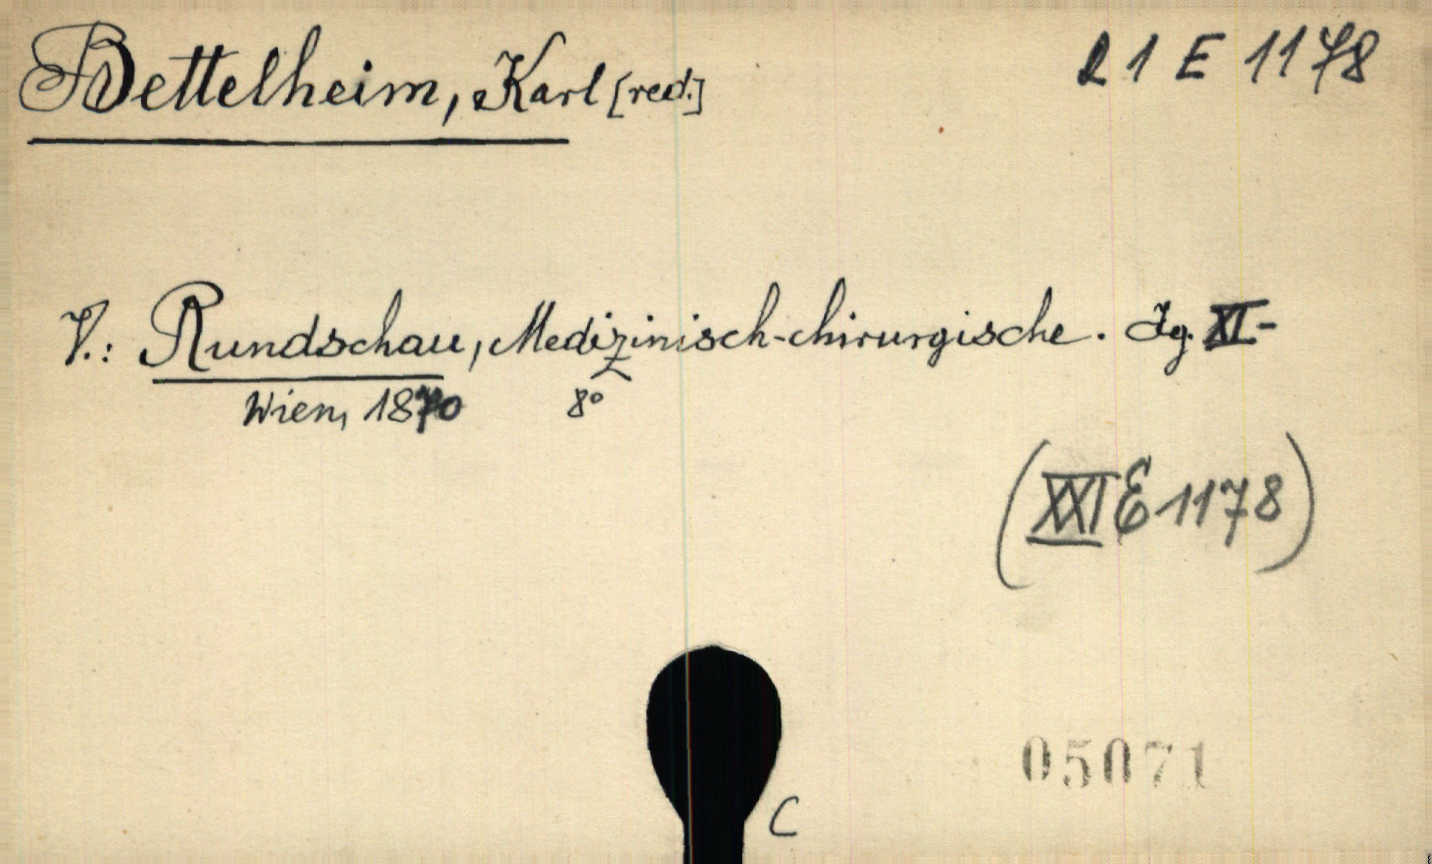 Bettelheim, Karl [red.]
21 E 1178
V.: Rundschau, Medizinisch-chirurgische. Jg. XI-
Wien, 1870 8°
(XXI E 1178)
05071
C